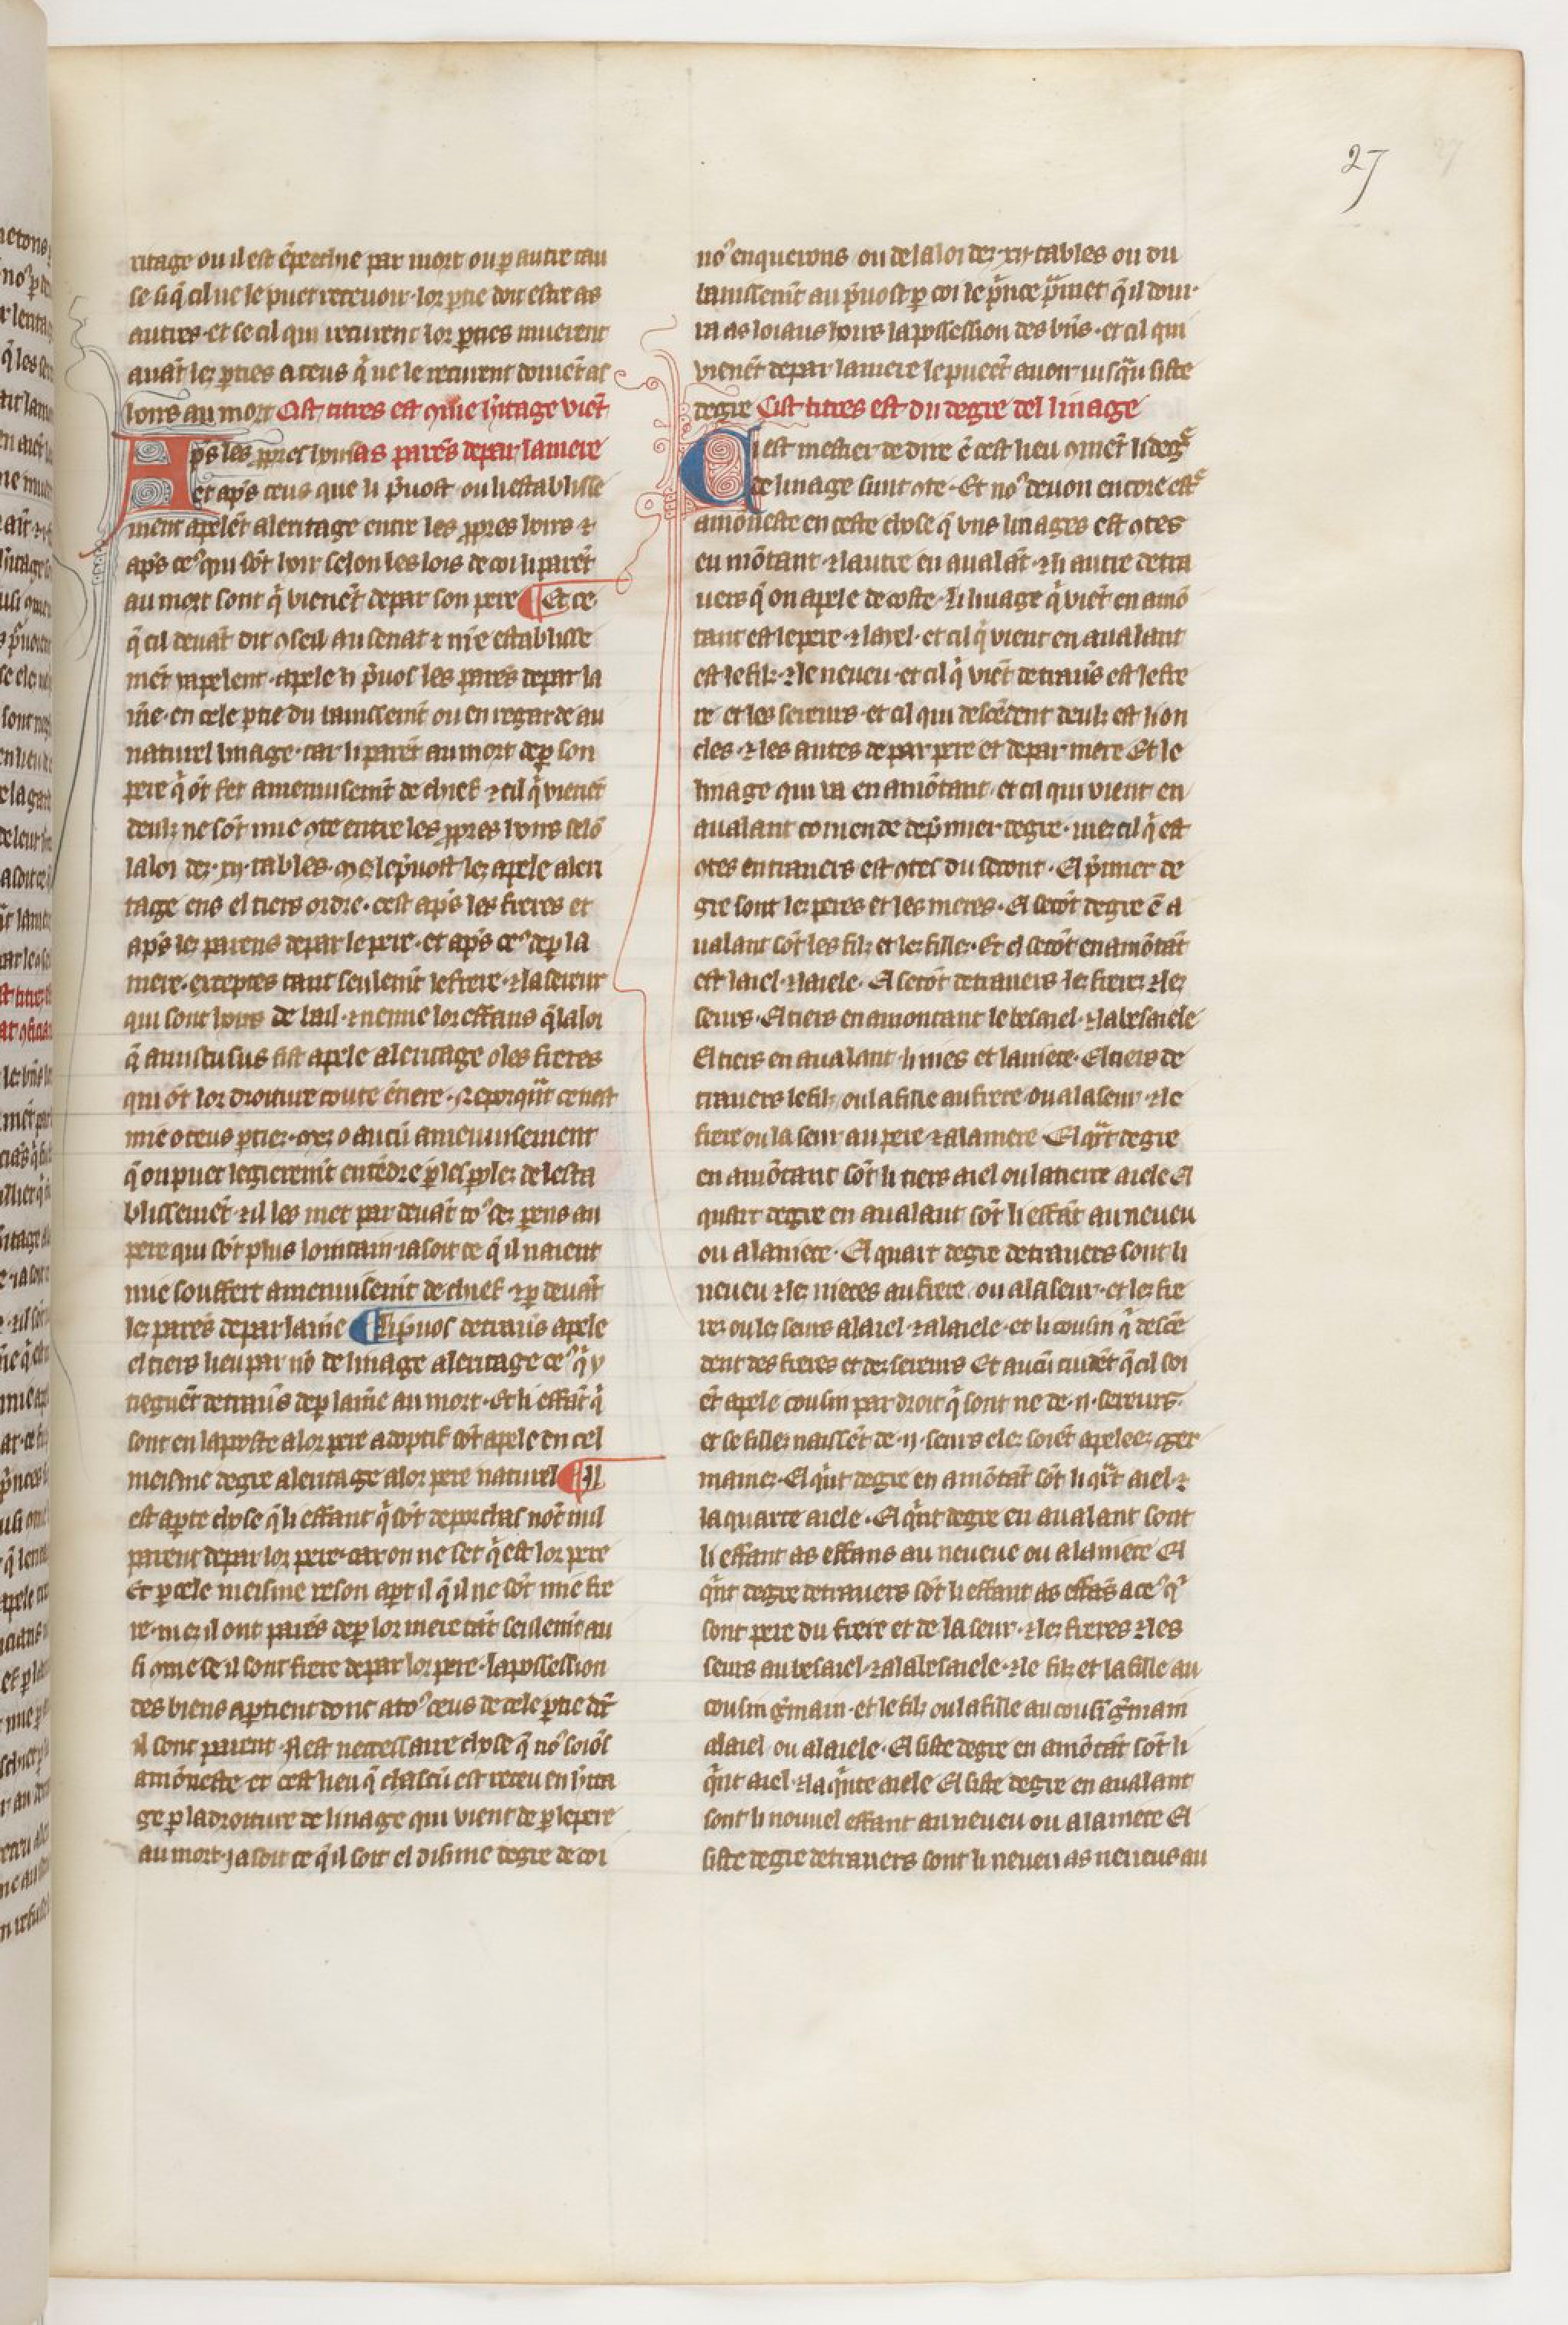 27
ritage ou il est ẽpeechie par mort ou ꝑ autre cau
se si q̃ cil ne le puet receuoir· lor ꝑtie doit estre as
autres· et se cil qui recurent lor ꝑties muerent
auãt lez ꝑties a ceus q̃ ne le recurent doiuẽt as
hoirs au mort Cist titres est ꝯmẽ lꝰitage viẽt
as parẽs depar la mere
Ap̃s les ꝓpres hoirs
et ap̃s ceus que li p̃uost ou li establisse
ment apelẽt a leritage entre les ꝓpres hoirs ⁊
ap̃s ceꝰ qui sõt hoir selon les lois de coi li parẽt
au mort sont q̃ vienẽt depar son pere ¶ Et ce
q̃ cil deuãt dit ꝯseil au senat ⁊ ml̃e establisse
mẽt rapelent· apele li p̃uos les parẽs depar la
mẽ· en cele ꝑtie du banissemt̃ ou en regarde au
naturel linage· car li parẽt au mort deꝑ son
pere q̃ õt fet amenuisemt̃ de chief ⁊ cil q̃ vienẽt
deulz ne sõt mie ꝯte entre les ꝓpres hoirs selõ
la loi dez· xij· tables· mes le p̃uost lez apele a leri
tage ens el tiers ordre· cest ap̃s les freres et
ap̃s lez parens depar le pere· et ap̃s ceꝰ deꝑ la
mere· exceptes tant seulemt̃ le frere· ⁊ la sereur
qui sont hors de bail· ⁊ nenne lor effans q̃ la loi
q̃ anistasius fist apele a leritage o les freres
qui õt lor droiture toute ẽtiere· Neporq̃t ce nest
mie o teus ꝑtiez· mez o aucũ amenuisement
q̃ on puet legieremt̃ entẽdre ꝑ les ꝑolez de lesta
blissemẽt· ⁊ il les met par deuãt toꝰ dez parens au
pere qui sõt plus lointain· ia soit ce q̃ il naient
mie souffert amenuisemt̃ de chief ⁊ ꝑ deuãt
lez parẽs depar la mẽ ¶ Li p̃uos de trauꝰs apele
el tiers lieu par nõ de linage a leritage ceꝰ q̃ y
tiegnẽt de trauꝰs deꝑ la mẽ au mort· Et li effãt q̃
sont en la poste a lor pere adoptif sõt apele en cel
meisme degre a leritage a lor pere naturel ¶ Il
est aꝑte chose q̃ li effant q̃ sõt de porchas nõt nul
parent depar lor pere· car on ne set q̃ est lor pere
Et ꝑ cele meisme reson aꝑt il q̃ il ne sõt mie fre
re· mez il ont parẽs deꝑ lor mere tãt seulemt̃ au
si ꝯme se il sont frere depar lor pere· la possession
des biens aꝑtient donc a toꝰ ceus de cele ꝑtie dõt
il sont parent· Il est necessaire chose q̃ noꝰ soiõs
amõneste et cest lieu q̃ chascũ est receu en lꝰita
ge ꝑ la droiture de linage qui vient de ꝑ le pere
au mort· ja soit ce q̃ il soit el disime degre de coi
noꝰ enquerons ou de la loi dez· xij· tables ou du
banissemt̃ au p̃uost ꝑ coi le p̃nce p̃met q̃ il dour
ra as loiaus hoirs la possession des biẽs· et cil qui
vienẽt depar la mere le pueẽt auoir iusq̃u siste
degre Cist titres est du degre del linage
Ci est mestier de dire ẽ cest lieu ꝯmẽt li degre
de linage sunt ꝯte· Et noꝰ deuon encore estre
amõneste en ceste chose q̃ vns linages est ꝯtes
en mõtant· ⁊ lautre en aualãt· ⁊ li autre de tra
uers q̃ on apele de coste· Li linage q̃ viẽt en amõ
tant est le pere· ⁊ layel· et cil q̃ vient en aualant
est le filz· ⁊ le neueu· et cil q̃ viẽt de trauꝰs est le fre
re et les sereurs· et cil qui descẽdent deulz est li on
cles· ⁊ les antes de par pere et depar mere Et le
linage qui va en amõtant· et cil qui vient en
aualant comence de p̃mier degre· mez cil q̃ est
ꝯtes en trauers est ꝯtes du secont· El p̃mier de
gre sont lez peres et les meres· El secõt degre ẽ a
ualant sõt les filz et lez fillez· Et el secõt en amõtãt
est laiel· ⁊ laiele· El secõt de trauers lez frerez ⁊ lez
seurs· El tiers en amontant le besaiel· ⁊ la besaiele
El tiers en aualant· li nies et la niece· El tiers de
trauers le filz ou la fille au frere ou a la seur· ⁊ le
frere ou la seur au pere ⁊ a la mere El q̃rt degre
en amõtant sõt li tiers aiel ou la tierce aiele El
quart degre en aualant sõt li effãt au neueu
ou a la niece· El quart degre de trauers sont li
neueu ⁊ lez nieces au frere ou a la seur· et lez fre
rez ou lez seurs a laiel ⁊ a laiele· et li cousin q̃ descẽ
dent des freres et dez sereurs Et aucũ cuidẽt q̃ cil soi
ẽt apele cousin par droit q̃ sont ne de· ij· sereurs·
et se fillez naissẽt de· ij· seurs elez soiẽt apeleez ger
mainez· El q̃nt degre en amõtãt sõt li q̃rt aiel· ⁊
la quarte aiele· El q̃nt degre en aualant sont
li effant as effans au neueue ou a la niece El
q̃nt degre de trauers sõt li effant as effãs a ceꝰ q̃
sont pere du frere et de la seur· ⁊ lez freres ⁊ les
seurs au besaiel· ⁊ a la besaiele· ⁊ le filz et la fille au
cousin gꝰmain· et le filz ou la fille au cousĩ gꝰmain
a laiel ou a laiele· El siste degre en amõtãt sõt li
q̃nt aiel· ⁊ la q̃nte aiele El siste degre en aualant
sont li nouuel effant au neueu ou a la niece El
siste degre de trauers sont li neueu as neueus au